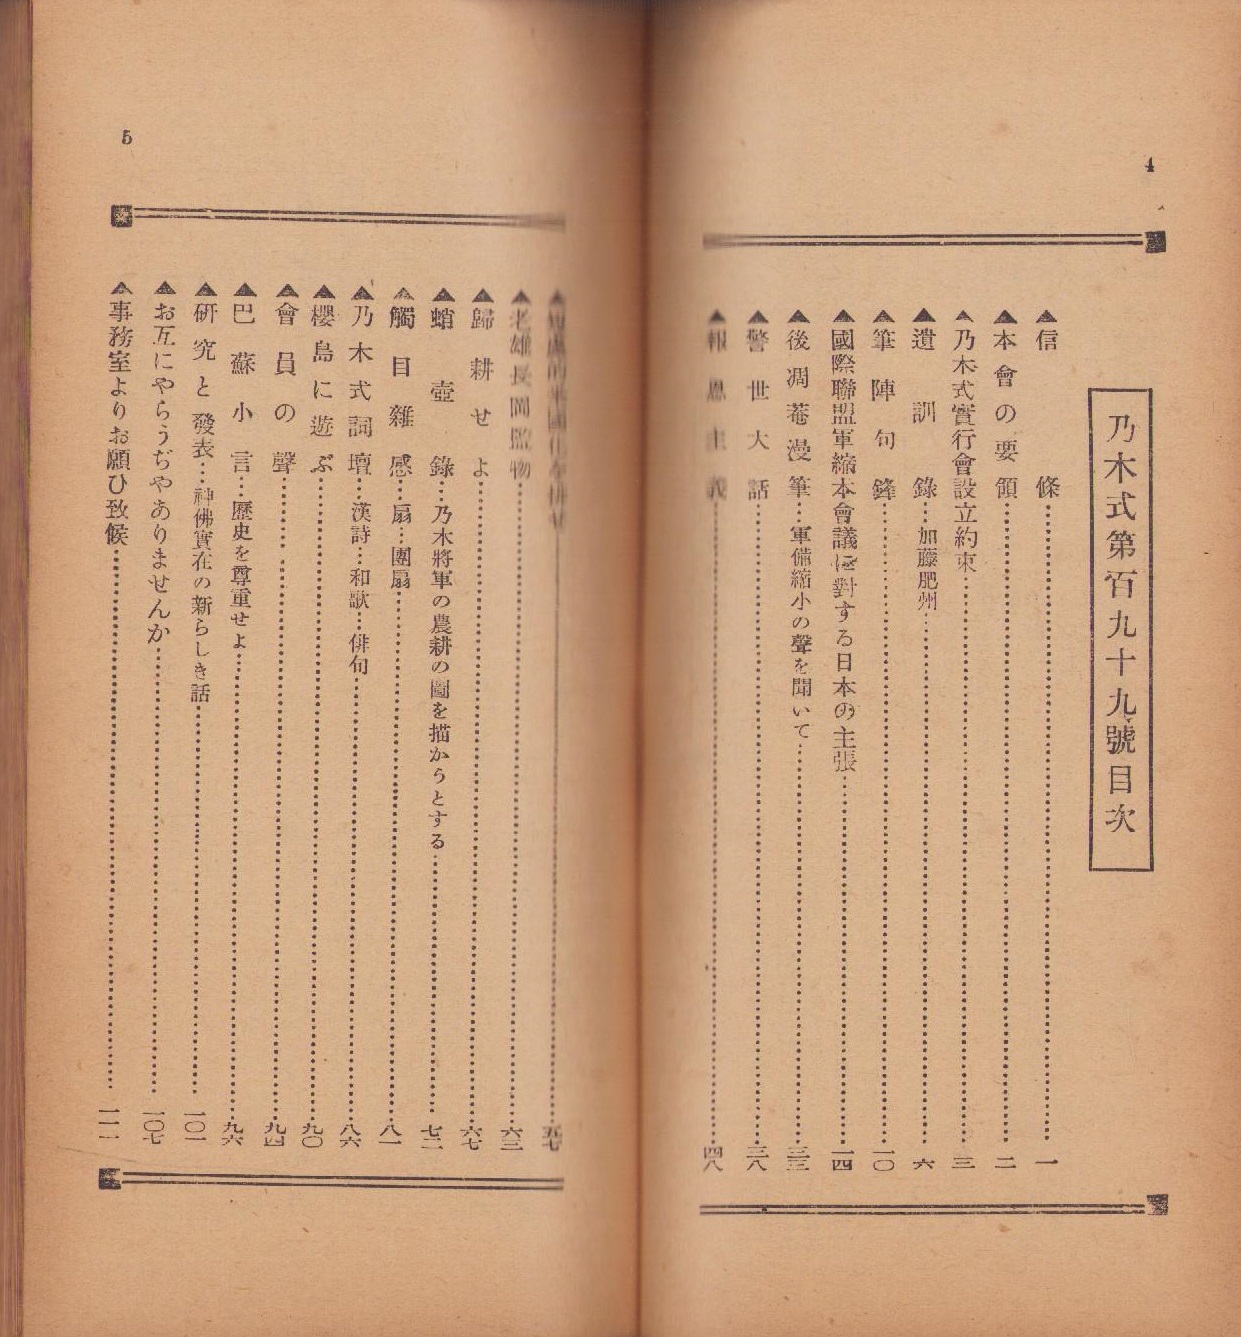 4
乃木式第百九十九號目次
▲信條……一
▲本會の要領……二
▲乃木式實行會設立約束……三
▲遺訓錄…加藤肥州……六
▲筆陣句鋒……一〇
▲國際聯盟軍縮本會議に對する日本の主張……一四
▲後凋菴漫筆…軍備縮小の聲を聞いて……三三
▲警世大話……三八
▲報恩主義……四八
的米國化を排せ……五七
▲老雄長岡監物……六三
▲歸耕せよ……六七
▲蛸壺錄…乃木將軍の農耕の圖を描かうとする……七二
▲觸目雜感…扇…團扇……八一
▲乃木式詞壇…漢詩…和歌…俳句……八六
▲櫻島に遊ぶ……九〇
▲會員の聲……九四
▲巴蘇小言…歷史を尊重せよ……九六
▲硏究と發表…神佛實在の新らしき話……一〇一
▲お互にやらうぢやありませんか……一〇七
▲事務室よりお願ひ致候……一一一
5